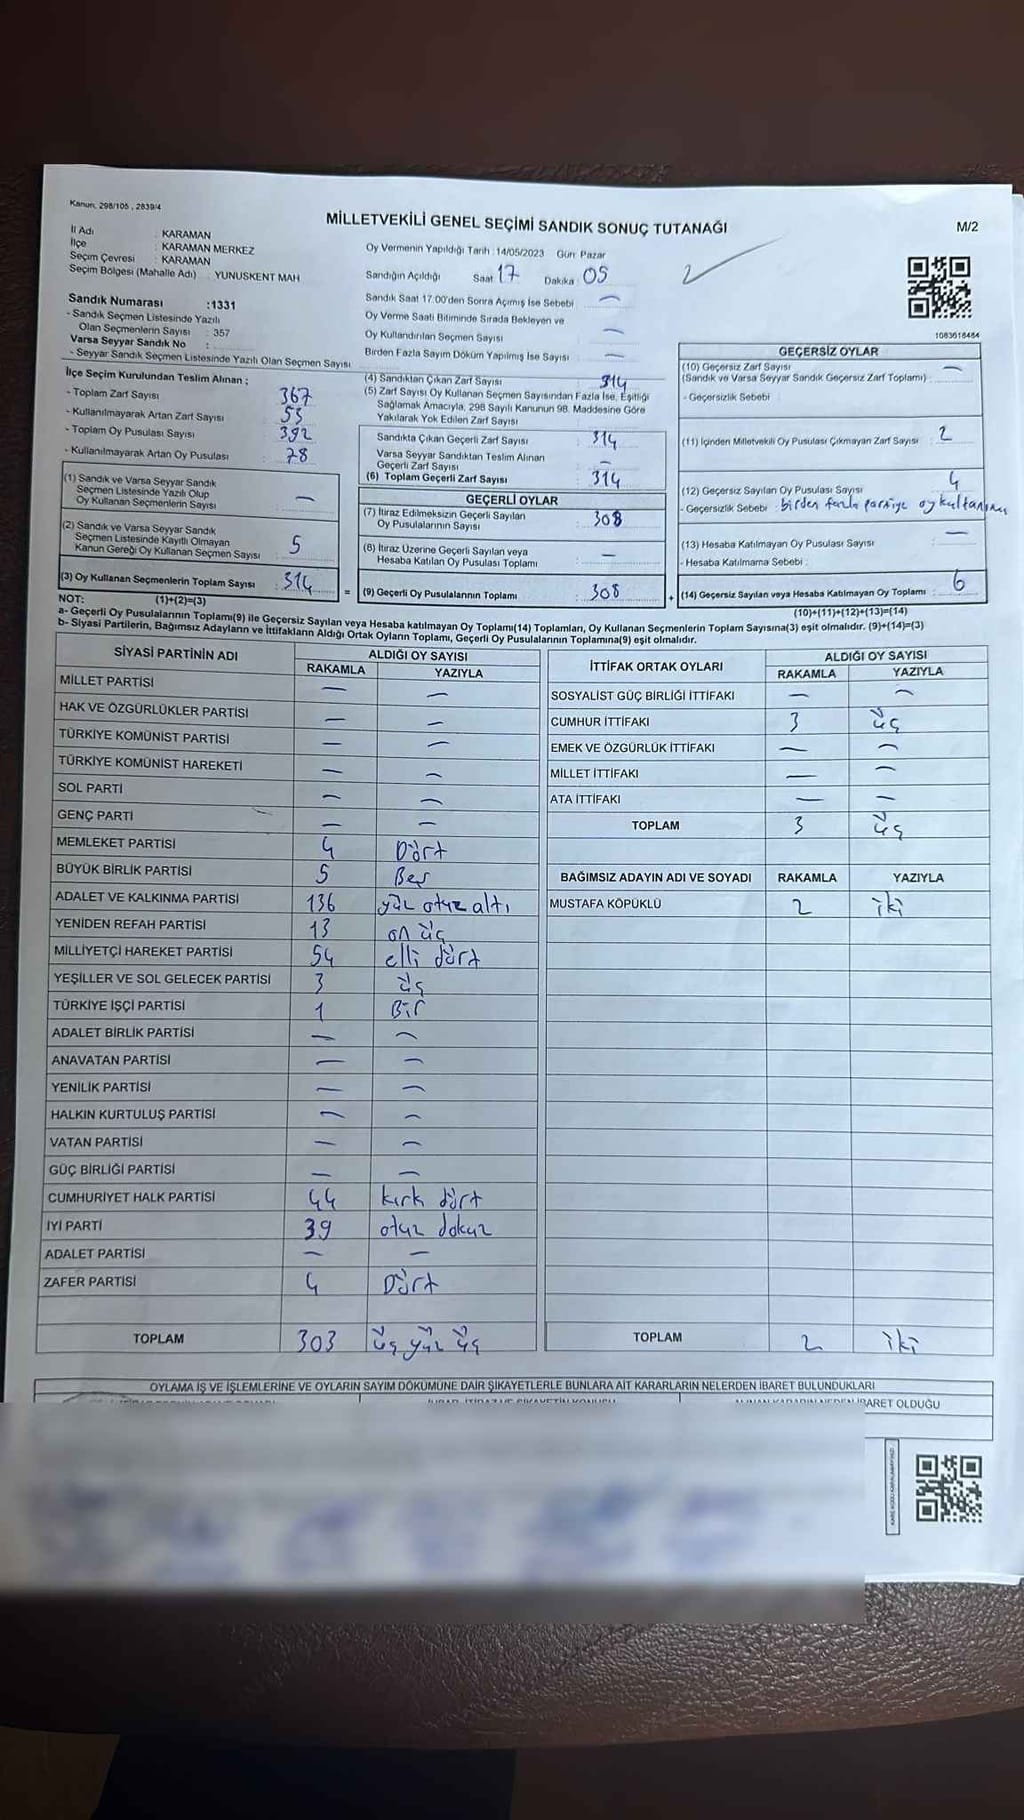 Kanun, 298/105 , 2839/4
MİLLETVEKİLİ GENEL SEÇİMİ SANDIK SONUÇ TUTANAĞI
M/2
İl Adı : KARAMAN
İlçe : KARAMAN MERKEZ
Seçim Çevresi : KARAMAN
Seçim Bölgesi (Mahalle Adı) : YUNUSKENT MAH
Sandık Numarası :1331
- Sandık Seçmen Listesinde Yazılı
Olan Seçmenlerin Sayısı : 357
Varsa Seyyar Sandık No :
- Seyyar Sandık Seçmen Listesinde Yazılı Olan Seçmen Sayısı
Oy Vermenin Yapıldığı Tarih :14/05/2023 Gün: Pazar
Sandığın Açıldığı Saat 17 Dakika 05
2
Sandık Saat 17:00'den Sonra Açılmış İse Sebebi : —
Oy Verme Saati Bitiminde Sırada Bekleyen ve
Oy Kullandırılan Seçmen Sayısı : —
Birden Fazla Sayım Döküm Yapılmış İse Sayısı : —
1083618484
İlçe Seçim Kurulundan Teslim Alınan ;
- Toplam Zarf Sayısı : 367
- Kullanılmayarak Artan Zarf Sayısı : 53
- Toplam Oy Pusulası Sayısı : 392
- Kullanılmayarak Artan Oy Pusulası : 78
(1) Sandık ve Varsa Seyyar Sandık
Seçmen Listesinde Yazılı Olup
Oy Kullanan Seçmenlerin Sayısı : —
(2) Sandık ve Varsa Seyyar Sandık
Seçmen Listesinde Kayıtlı Olmayan
Kanun Gereği Oy Kullanan Seçmen Sayısı : 5
(3) Oy Kullanan Seçmenlerin Toplam Sayısı : 314
(4) Sandıktan Çıkan Zarf Sayısı : 314
(5) Zarf Sayısı Oy Kullanan Seçmen Sayısından Fazla İse, Eşitliği
Sağlamak Amacıyla, 298 Sayılı Kanunun 98. Maddesine Göre
Yakılarak Yok Edilen Zarf Sayısı :
Sandıkta Çıkan Geçerli Zarf Sayısı : 314
Varsa Seyyar Sandıktan Teslim Alınan
Geçerli Zarf Sayısı : —
(6) Toplam Geçerli Zarf Sayısı : 314
GEÇERLİ OYLAR
(7) İtiraz Edilmeksizin Geçerli Sayılan
Oy Pusulalarının Sayısı : 308
(8) İtiraz Üzerine Geçerli Sayılan veya
Hesaba Katılan Oy Pusulası Toplamı : —
= (9) Geçerli Oy Pusulalarının Toplamı : 308
GEÇERSİZ OYLAR
(10) Geçersiz Zarf Sayısı
(Sandık ve Varsa Seyyar Sandık Geçersiz Zarf Toplamı) : —
- Geçersizlik Sebebi :
(11) İçinden Milletvekili Oy Pusulası Çıkmayan Zarf Sayısı : 2
(12) Geçersiz Sayılan Oy Pusulası Sayısı : 4
- Geçersizlik Sebebi : birden fazla partiye oy kullanımı
(13) Hesaba Katılmayan Oy Pusulası Sayısı : —
- Hesaba Katılmama Sebebi :
+ (14) Geçersiz Sayılan veya Hesaba Katılmayan Oy Toplamı : 6
NOT: (1)+(2)=(3)
(10)+(11)+(12)+(13)=(14)
a- Geçerli Oy Pusulalarının Toplamı(9) ile Geçersiz Sayılan veya Hesaba katılmayan Oy Toplamı(14) Toplamları, Oy Kullanan Seçmenlerin Toplam Sayısına(3) eşit olmalıdır. (9)+(14)=(3)
b- Siyasi Partilerin, Bağımsız Adayların ve İttifakların Aldığı Ortak Oyların Toplamı, Geçerli Oy Pusulalarının Toplamına(9) eşit olmalıdır.
SİYASİ PARTİNİN ADI ALDIĞI OY SAYISI
RAKAMLA YAZIYLA
MİLLET PARTİSİ — —
HAK VE ÖZGÜRLÜKLER PARTİSİ — —
TÜRKİYE KOMÜNİST PARTİSİ — —
TÜRKİYE KOMÜNİST HAREKETİ — —
SOL PARTİ — —
GENÇ PARTİ — —
MEMLEKET PARTİSİ 4 Dört
BÜYÜK BİRLİK PARTİSİ 5 Beş
ADALET VE KALKINMA PARTİSİ 136 yüz otuz altı
YENİDEN REFAH PARTİSİ 13 on üç
MİLLİYETÇİ HAREKET PARTİSİ 54 elli dört
YEŞİLLER VE SOL GELECEK PARTİSİ 3 üç
TÜRKİYE İŞÇİ PARTİSİ 1 Bir
ADALET BİRLİK PARTİSİ — —
ANAVATAN PARTİSİ — —
YENİLİK PARTİSİ — —
HALKIN KURTULUŞ PARTİSİ — —
VATAN PARTİSİ — —
GÜÇ BİRLİĞİ PARTİSİ — —
CUMHURİYET HALK PARTİSİ 44 kırk dört
İYİ PARTİ 39 otuz dokuz
ADALET PARTİSİ — —
ZAFER PARTİSİ 4 Dört
TOPLAM 303 üç yüz üç
İTTİFAK ORTAK OYLARI ALDIĞI OY SAYISI
RAKAMLA YAZIYLA
SOSYALİST GÜÇ BİRLİĞİ İTTİFAKI — —
CUMHUR İTTİFAKI 3 üç
EMEK VE ÖZGÜRLÜK İTTİFAKI — —
MİLLET İTTİFAKI — —
ATA İTTİFAKI — —
TOPLAM 3 üç
BAĞIMSIZ ADAYIN ADI VE SOYADI RAKAMLA YAZIYLA
MUSTAFA KÖPÜKLÜ 2 iki
TOPLAM 2 iki
OYLAMA İŞ VE İŞLEMLERİNE VE OYLARIN SAYIM DÖKÜMÜNE DAİR ŞİKAYETLERLE BUNLARA AİT KARARLARIN NELERDEN İBARET BULUNDUKLARI
İBARET OLDUĞU